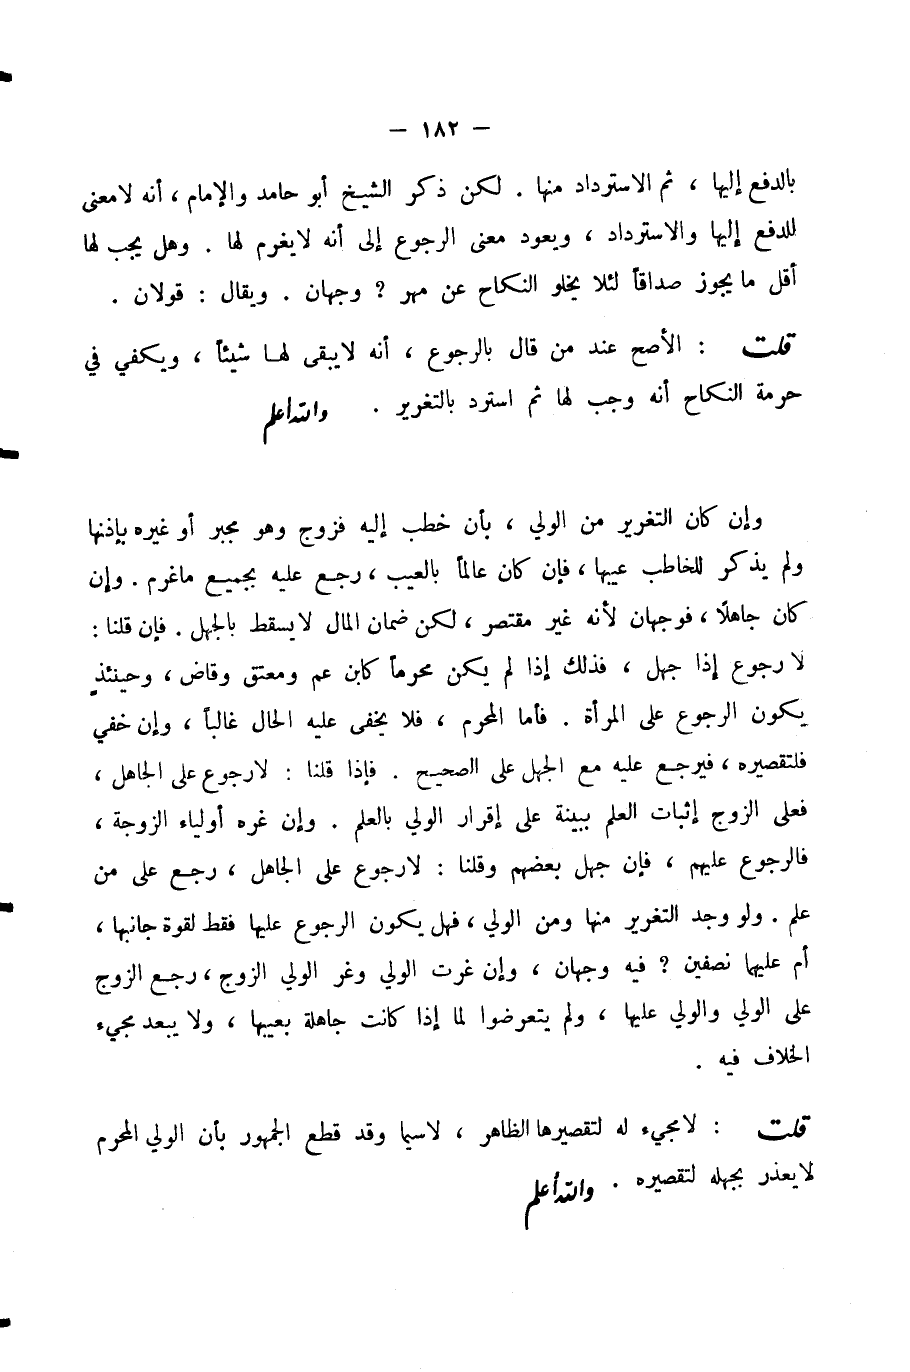 – ١٨٢ –
بالدفع إليها ، ثم الاسترداد منها . لكن ذكر الشيخ أبو حامد والإمام ، أنه لامعنى
للدفع إليها والاسترداد ، ويعود معنى الرجوع إلى أنه لايغرم لها . وهل يجب لها
أقل مايجوز صداقاً لئلا يخلو النكاح عن مهر ? وجهان . ويقال : قولان .
قلت : الأصح عند من قال بالرجوع ، أنه لايبقى لهـا شيئاً ، ويكفي في
حرمة النكاح أنه وجب لها ثم استرد بالتغرير . والله أعلم
وإن كان التغرير من الولي ، بأن خطب إليه فزوج وهو مجبر أو غيره بإذنها
ولم يذكر للخاطب عيبها ، فإن كان عالماً بالعيب ، رجـع عليه بجميـع ماغرم . وإن
كان جاهلًا ، فوجهان لأنه غير مقتصر ، لكن ضمان المال لايسقط بالجهل . فإن قلنا :
لا رجوع إذا جهل ، فذلك إذا لم يكن محرماً كابن عم ومعتق وقاض ، وحينئذٍ
يكون الرجوع على المرأة . فأما المحرم ، فلا يخفى عليه الحال غالباً ، وإن خفي
فلتقصيره ، فيرجـع عليه مع الجهل على الصحيـح . فإذا قلنا : لارجوع على الجاهل ،
فعلى الزوج إثبات العلم ببينة على إقرار الولي بالعلم . وإن غره أولياء الزوجة ،
فالرجوع عليهم ، فإن جهل بعضهم وقلنا : لارجوع على الجاهل ، رجـع على من
علم . ولو وجد التغرير منها ومن الولي ، فهل يكون الرجوع عليها فقط لقوة جانبها ،
أم عليهما نصفين ? فيه وجهان ، وإن غرت الولي وغر الولي الزوج ، رجـع الزوج
على الولي والولي عليها ، ولم يتعرضوا لما إذا كانت جاهلة بعيبها ، ولا يبعد مجيء
الخلاف فيه .
قلت : لامجيء له لتقصيرها الظاهر ، لاسيما وقد قطع الجمهور بأن الولي المحرم
لايعذر بجهله لتقصيره . والله أعلم